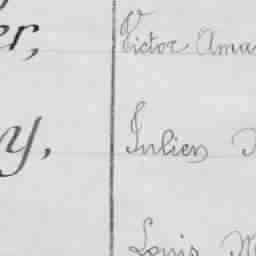 er, Victor Ama
y, Julien
Louis M